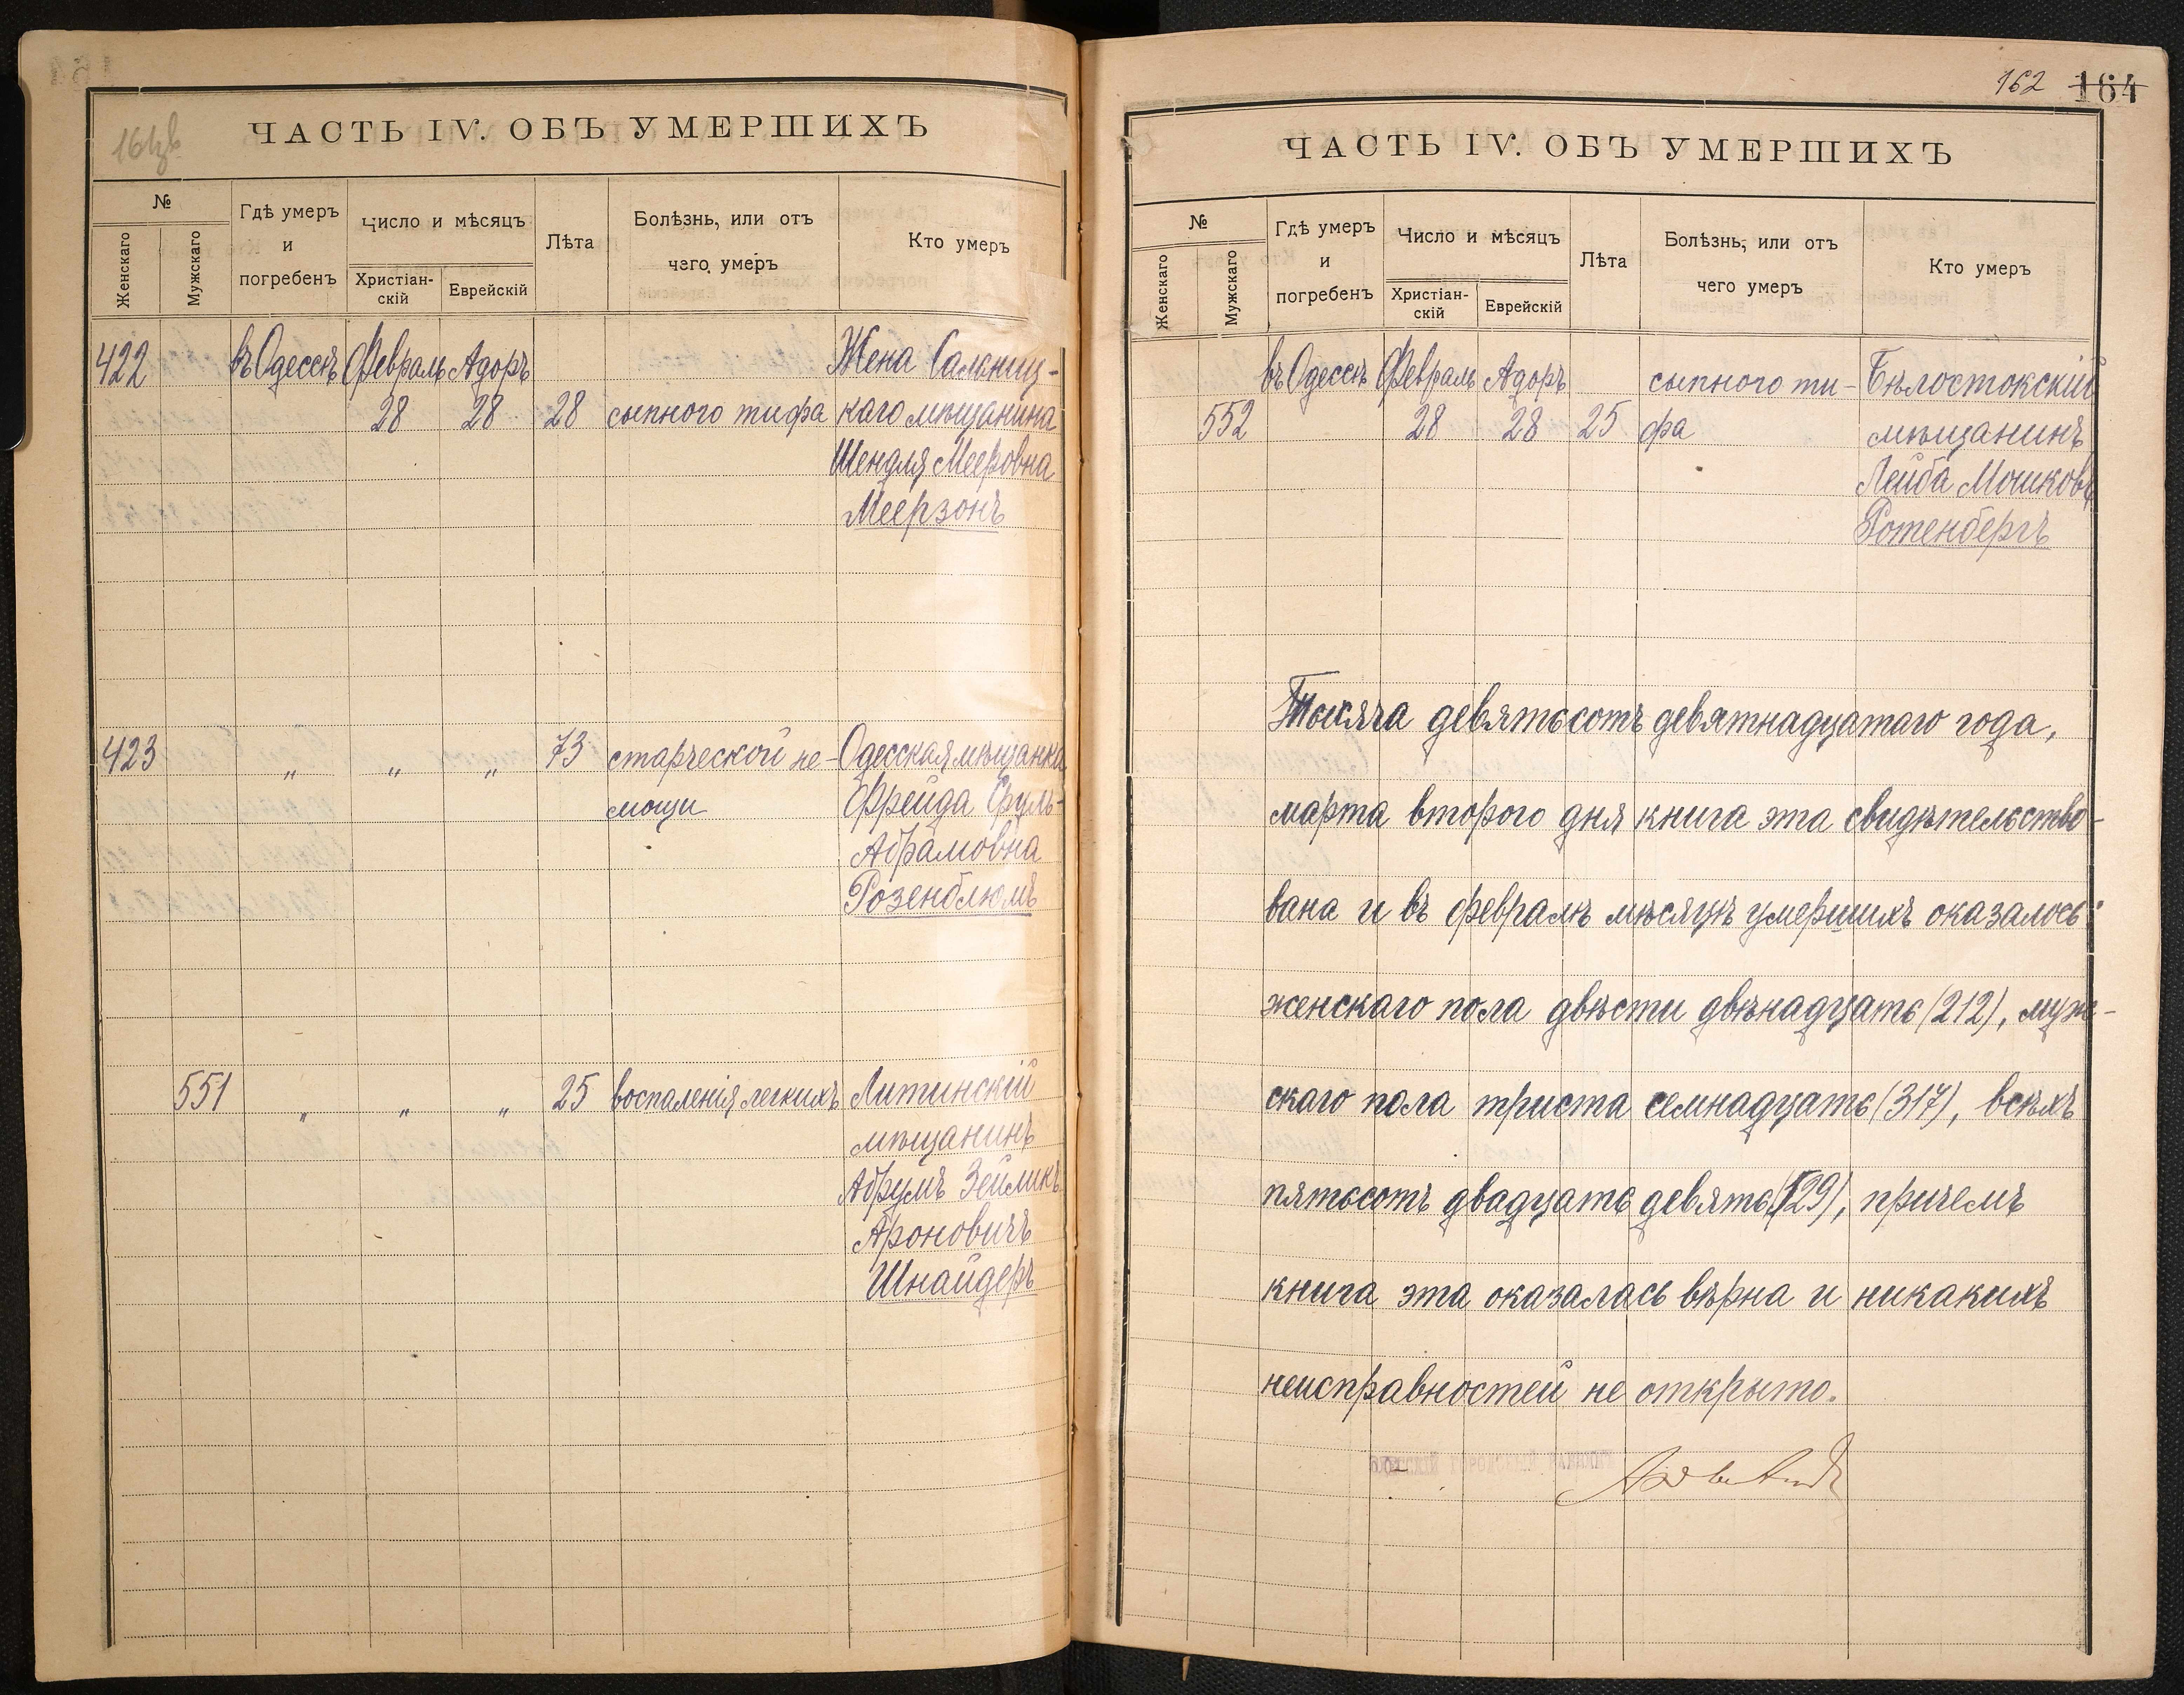 161 об
ЧАСТЬ IV. ОБЪ УМЕРШИХЪ
№
Женскаго
Мужскаго
Гдѣ умеръ
и
погребенъ
Число и мѣсяцъ
Христіан-
скій
Еврейскій
Лѣта
Болѣзнь, или отъ
чего умеръ
Кто умеръ
422 въ Одессѣ Февраль Адоръ Жена Сальниц-
28 28 28 сыпного тифа каго мѣщанина
Шендля Мееровна
Меерзонъ
423 " " " 73 старческой не- Одесская мѣщанка
мощи Фрейда Сруль-
Абрамовна
Розенблюмъ
551 " " " 25 воспаленія легкихъ Литинскій
мѣщанинъ
Абрумъ Зейликъ
Ароновичъ
Шнайдеръ
162 164
ЧАСТЬ IV. ОБЪ УМЕРШИХЪ
№
Женскаго
Мужскаго
Гдѣ умеръ
и
погребенъ
Число и мѣсяцъ
Христіан-
скій
Еврейскій
Лѣта
Болѣзнь, или отъ
чего умеръ
Кто умеръ
въ Одессѣ Февраль Адоръ сыпного ти- Бѣлостокскій
552 28 28 25 фа мѣщанинъ
Лейба Мошковъ
Ротенбергъ
Тысяча девятьсотъ девятнадцатаго года,
марта второго дня книга эта свидѣтельство-
вана и въ февралѣ мѣсяцѣ умершихъ оказалось:
женскаго пола двѣсти двѣнадцать (212), муж-
скаго пола триста семнадцать (317), всѣхъ
пятьсотъ двадцать девять (529), причемъ
книга эта оказалась вѣрна и никакихъ
неисправностей не открыто.
ОДЕССКІЙ ГОРОДСКОЙ РАВВИНЪ